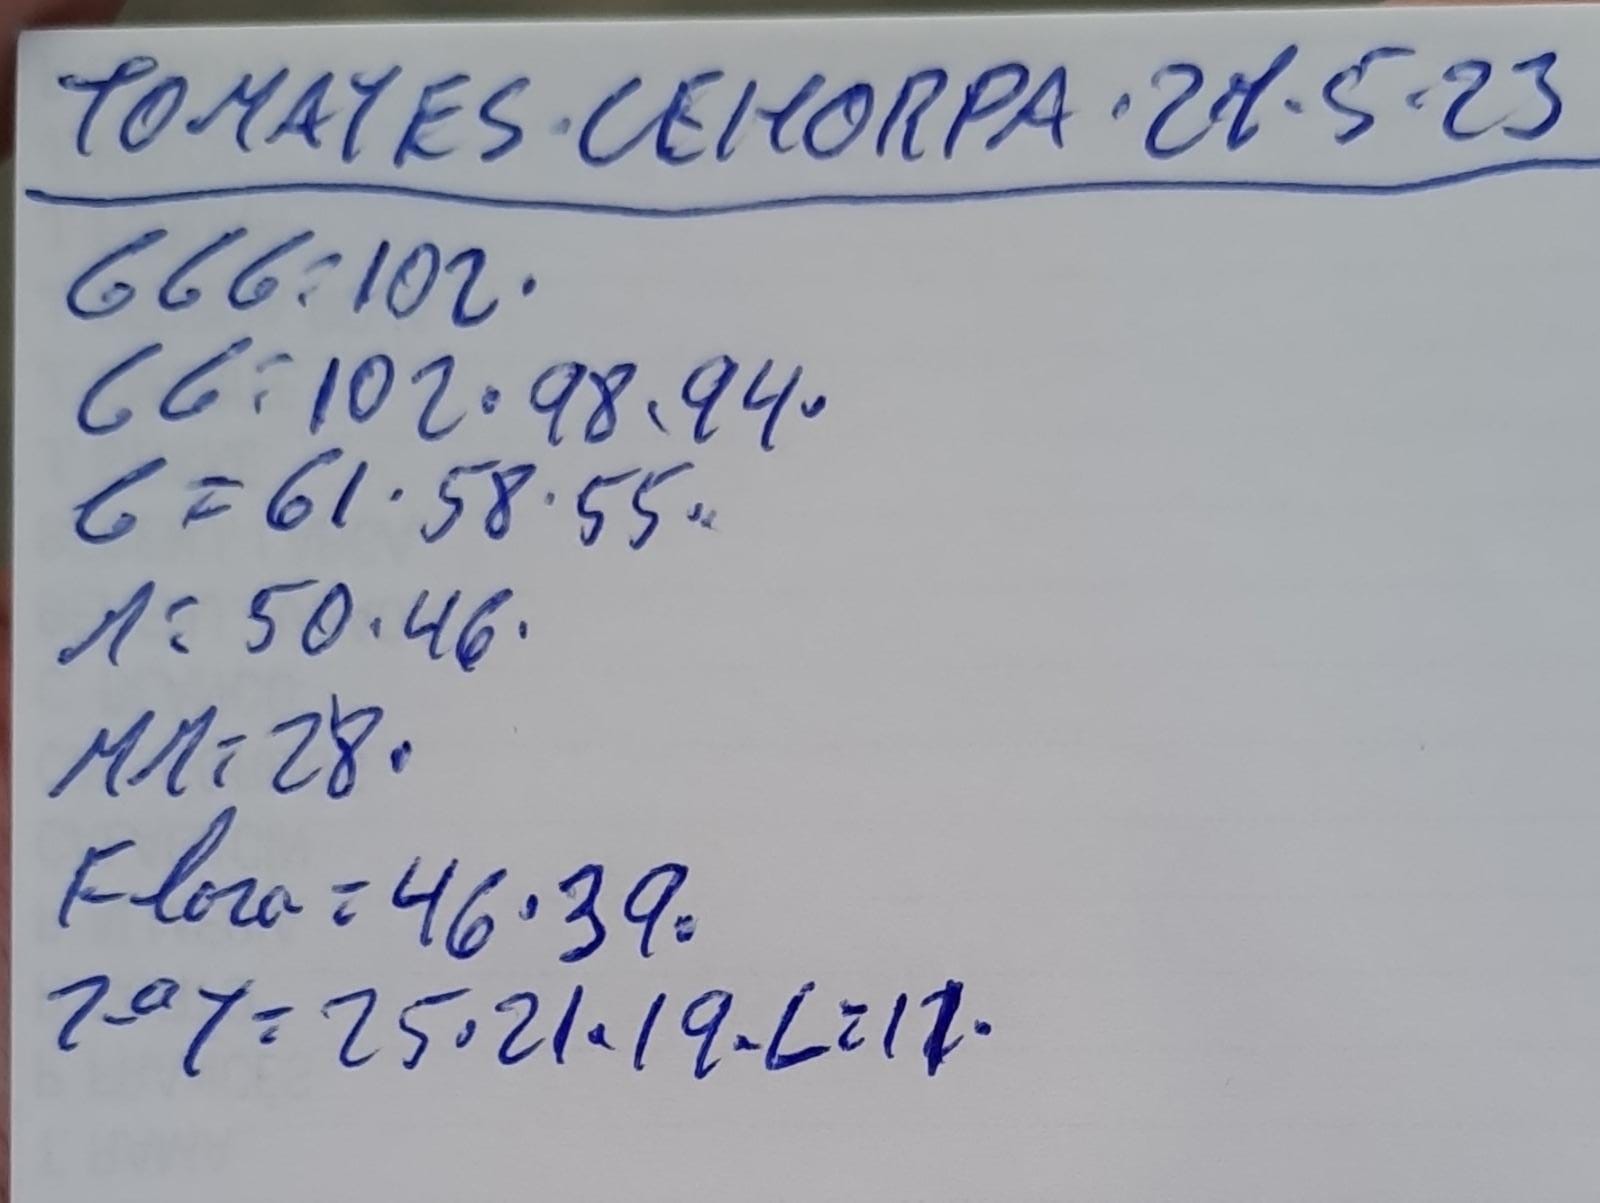 TOMATES·CEHORPA·27·5·23
GGG=102.
GG=102·98·94.
G=61·58·55.
M=50·46.
MM=28.
Flora=46·39.
2ªT=25·21·19·L=17.